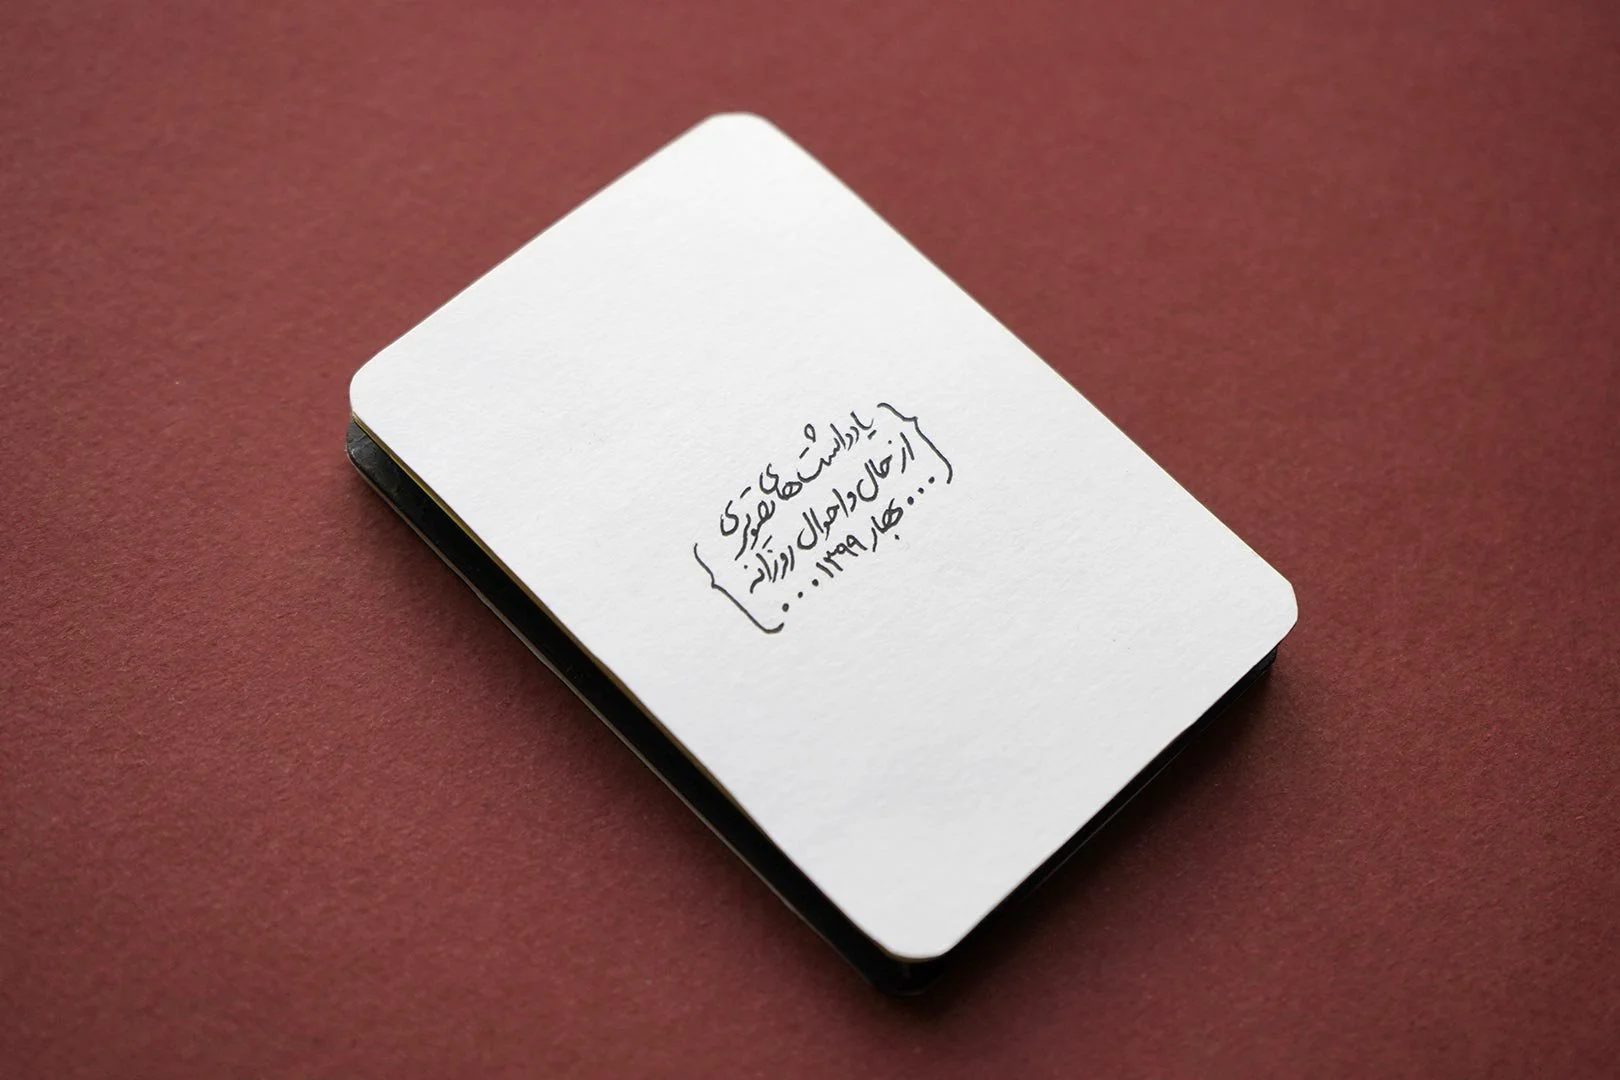 یادداشت‌های تصویری
از حال و احوال روزانه
... بهار ۱۳۹۹ ...